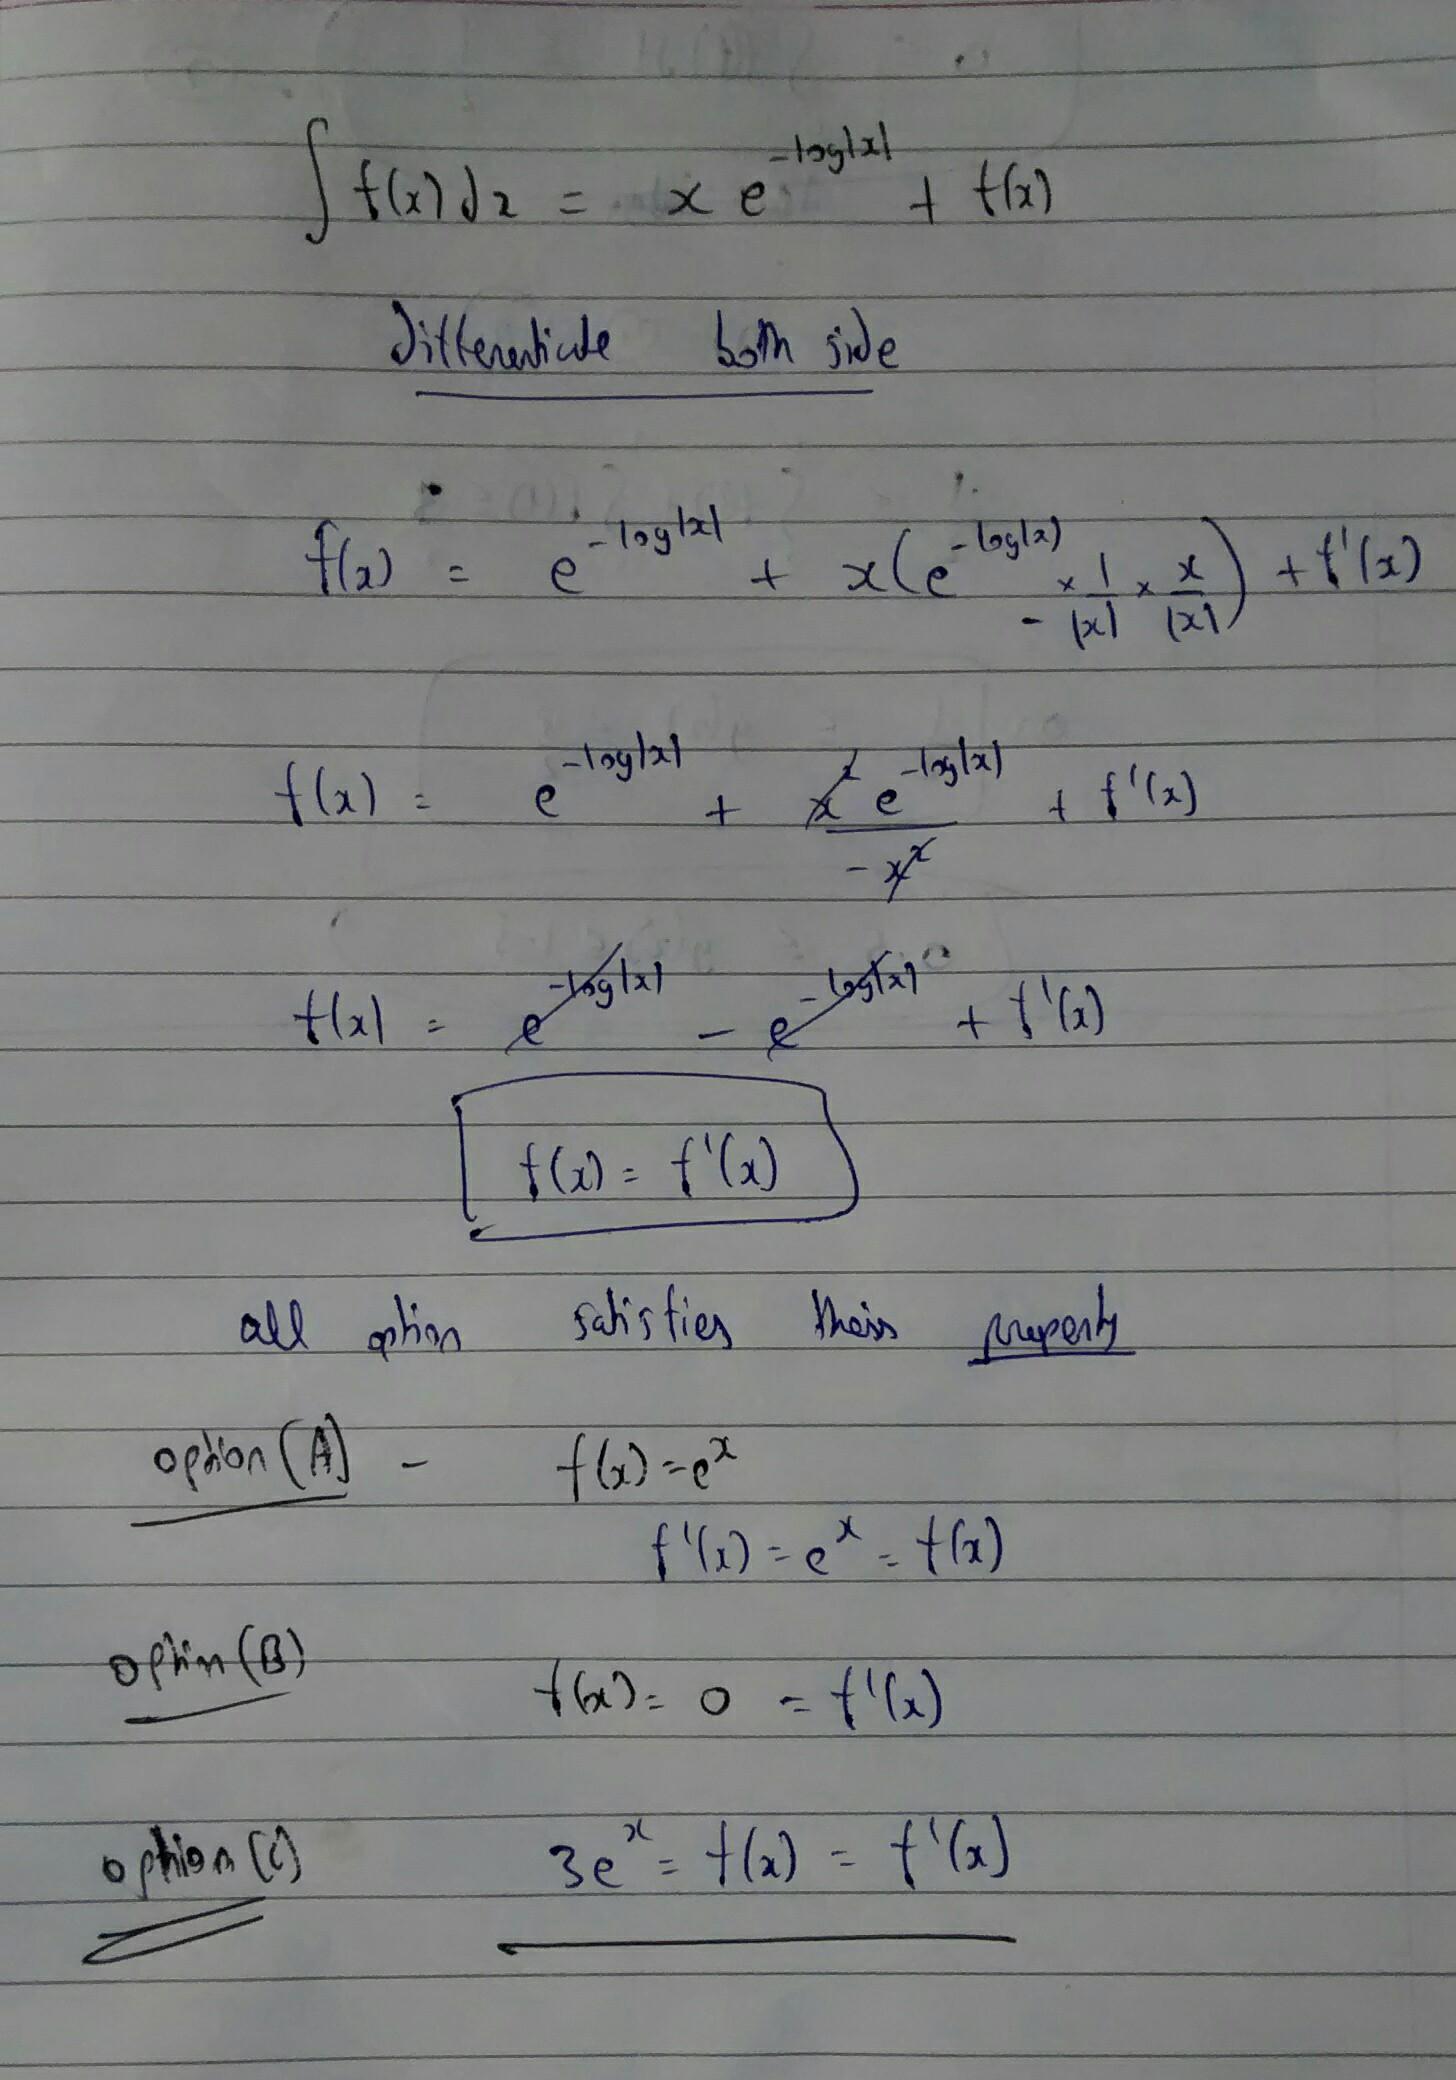 ∫ f(x) dx = x e^{-log|x|} + f(x)
Differentiate both side
f(x) = e^{-log|x|} + x(e^{-log|x|} × -1/|x| × x/|x|) + f'(x)
f(x) = e^{-log|x|} + x² e^{-log|x|} / -x² + f'(x)
f(x) = e^{-log|x|} - e^{-log|x|} + f'(x)
f(x) = f'(x)
all option satisfies this property
option (A) - f(x) = e^x
f'(x) = e^x = f(x)
option (B) f(x) = 0 = f'(x)
option (C) 3e^x = f(x) = f'(x)